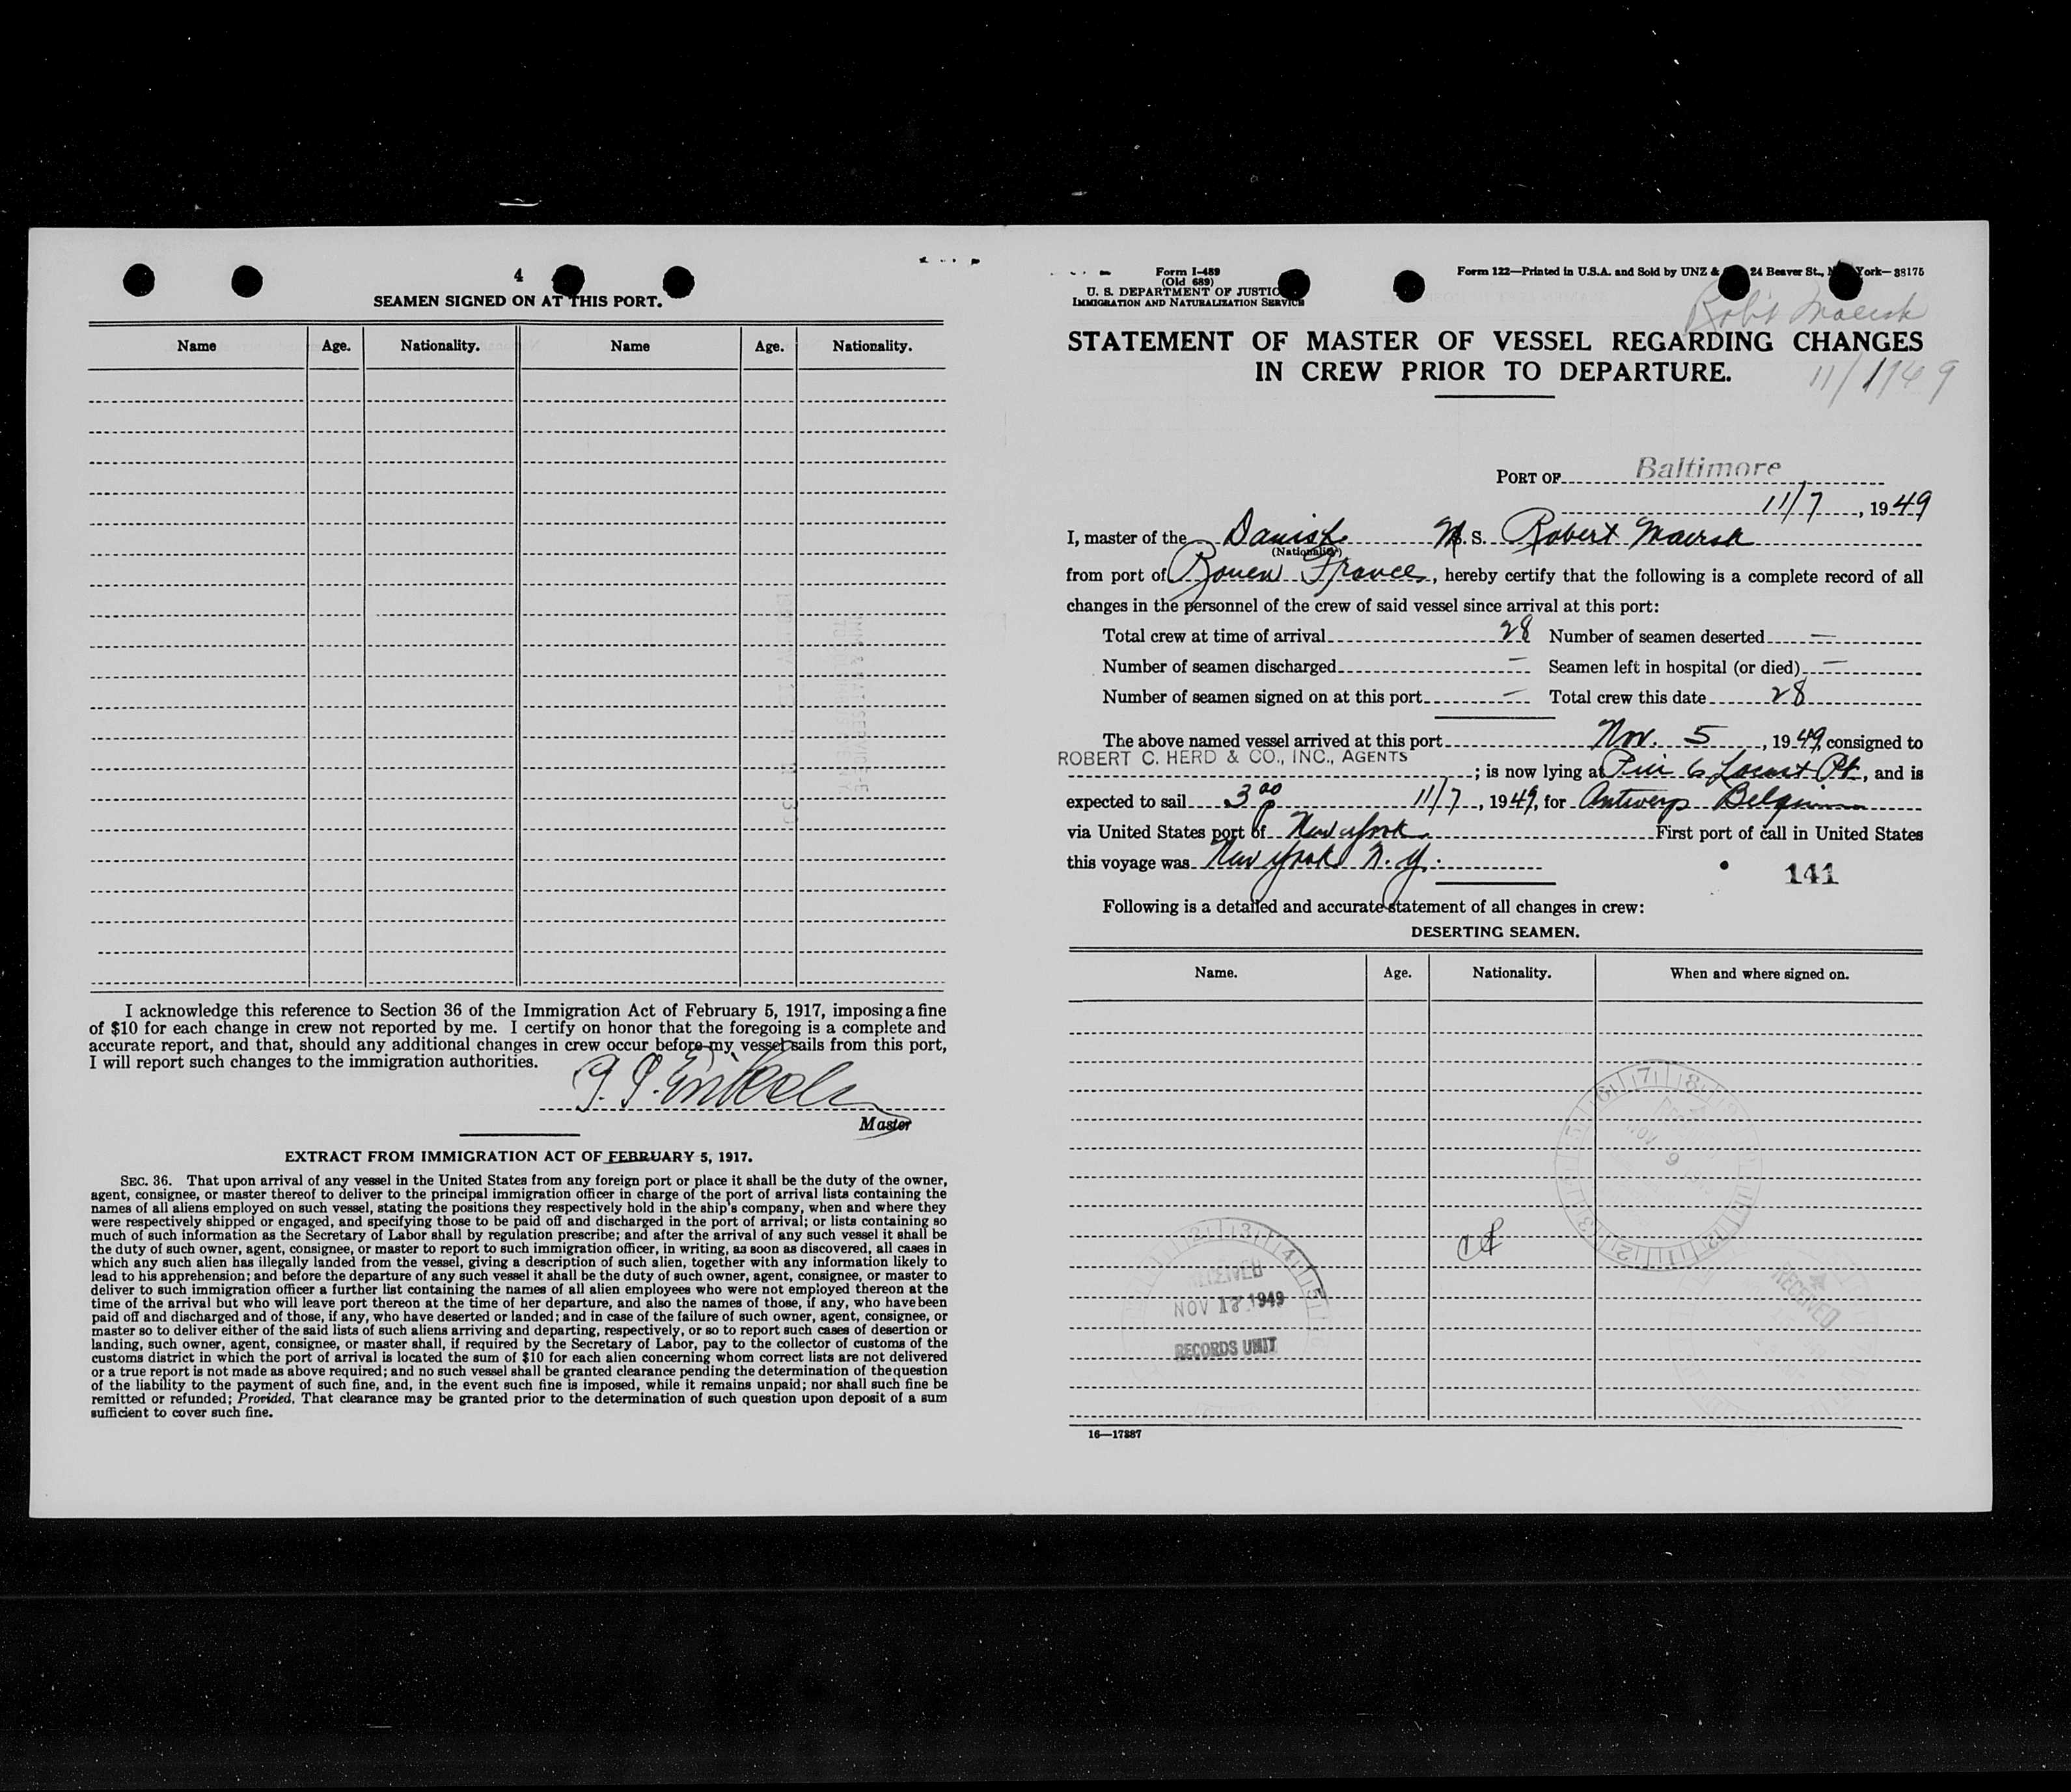 4
SEAMEN SIGNED ON AT THIS PORT.
Name Age. Nationality. Name Age. Nationality.
I acknowledge this reference to Section 36 of the Immigration Act of February 5, 1917, imposing a fine
of $10 for each change in crew not reported by me. I certify on honor that the foregoing is a complete and
accurate report, and that, should any additional changes in crew occur before my vessel sails from this port,
I will report such changes to the immigration authorities.
Master
EXTRACT FROM IMMIGRATION ACT OF FEBRUARY 5, 1917.
SEC. 36. That upon arrival of any vessel in the United States from any foreign port or place it shall be the duty of the owner,
agent, consignee, or master thereof to deliver to the principal immigration officer in charge of the port of arrival lists containing the
names of all aliens employed on such vessel, stating the positions they respectively hold in the ship's company, when and where they
were respectively shipped or engaged, and specifying those to be paid off and discharged in the port of arrival; or lists containing so
much of such information as the Secretary of Labor shall by regulation prescribe; and after the arrival of any such vessel it shall be
the duty of such owner, agent, consignee, or master to report to such immigration officer, in writing, as soon as discovered, all cases in
which any such alien has illegally landed from the vessel, giving a description of such alien, together with any information likely to
lead to his apprehension; and before the departure of any such vessel it shall be the duty of such owner, agent, consignee, or master to
deliver to such immigration officer a further list containing the names of all alien employees who were not employed thereon at the
time of the arrival but who will leave port thereon at the time of her departure, and also the names of those, if any, who have been
paid off and discharged and of those, if any, who have deserted or landed; and in case of the failure of such owner, agent, consignee, or
master so to deliver either of the said lists of such aliens arriving and departing, respectively, or so to report such cases of desertion or
landing, such owner, agent, consignee, or master shall, if required by the Secretary of Labor, pay to the collector of customs of the
customs district in which the port of arrival is located the sum of $10 for each alien concerning whom correct lists are not delivered
or a true report is not made as above required; and no such vessel shall be granted clearance pending the determination of the question
of the liability to the payment of such fine, and, in the event such fine is imposed, while it remains unpaid; nor shall such fine be
remitted or refunded; Provided, That clearance may be granted prior to the determination of such question upon deposit of a sum
sufficient to cover such fine.
Form I-489
(Old 689)
U. S. DEPARTMENT OF JUSTICE
IMMIGRATION AND NATURALIZATION SERVICE
Form 122—Printed in U.S.A. and Sold by UNZ & 24 Beaver St., New York—38175
Rob't Maersk
STATEMENT OF MASTER OF VESSEL REGARDING CHANGES
IN CREW PRIOR TO DEPARTURE.
11/1/49
PORT OF Baltimore
11/7, 1949
I, master of the Danish M. S. Robert Maersk
(Nationality)
from port of Rouen France, hereby certify that the following is a complete record of all
changes in the personnel of the crew of said vessel since arrival at this port:
Total crew at time of arrival 28 Number of seamen deserted —
Number of seamen discharged — Seamen left in hospital (or died) —
Number of seamen signed on at this port — Total crew this date 28
The above named vessel arrived at this port Nov. 5, 1949, consigned to
ROBERT C. HERD & CO., INC., AGENTS; is now lying at Pier 6 Locust Pt., and is
expected to sail 3 00 p 11/7, 1949, for Antwerp Belgium
via United States port of New York First port of call in United States
this voyage was New York N. Y.
141
Following is a detailed and accurate statement of all changes in crew:
DESERTING SEAMEN.
Name. Age. Nationality. When and where signed on.
RECEIVED
NOV 17 1949
RECORDS UNIT
NOV 9
RECEIVED
16—17887